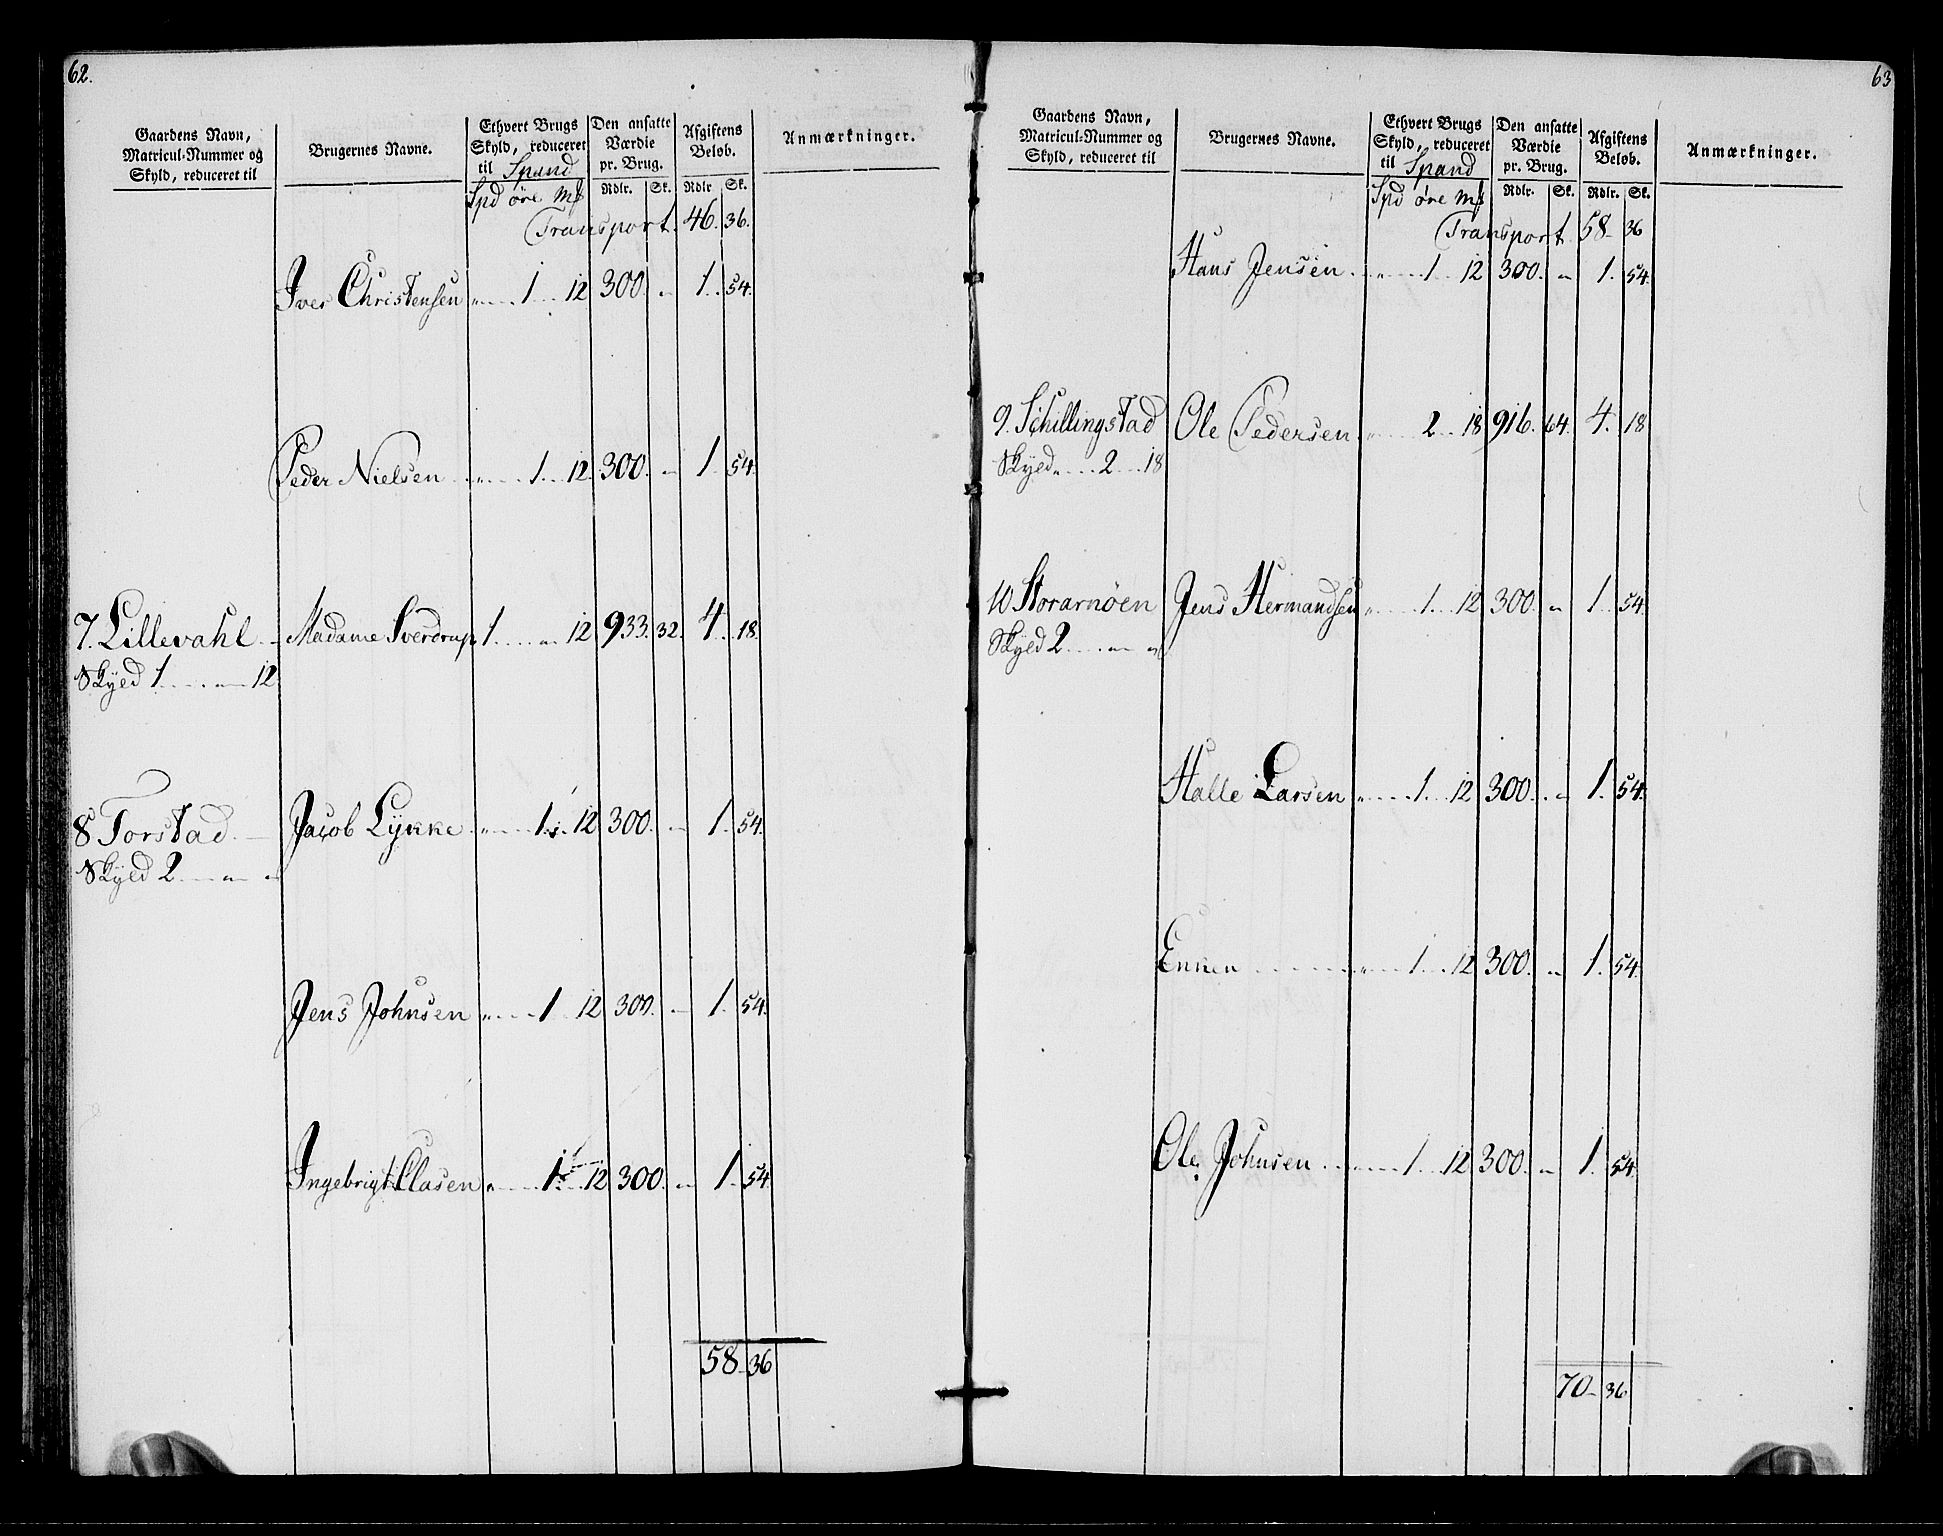 62.
Gaardens Navn, Matricul-Nummer og Skyld, reduceret til
Brugernes Navne.
Ethvert Brugs Skyld, reduceret til Spand
Den ansatte Værdie pr. Brug.
Afgiftens Beløb.
Anmærkninger.
Spd øre Mſ Rdlr. Sk. Rdlr Sk.
Transport. 46. 36.
Iver Christensen „ 1 12 300. „ 1. 54.
Peder Nielsen „ 1. 12. 300. „ 1. 54.
7. Lillevahl Madame Sverdrup 1 „ 12 933. 32. 4. 18.
Skyld 1 „ 12
8 Torstad Jacob Lykke „ 1. 12 300. „ 1. 54.
Skyld 2 „ „
Jens Johnsen „ 1 12 300. „ 1. 54.
Ingebrigt Clasen „ 1. 12 300. „ 1. 54.
58 36
63
Gaardens Navn, Matricul-Nummer og Skyld, reduceret til
Brugernes Navne.
Ethvert Brugs Skyld, reduceret til Spand
Den ansatte Værdie pr. Brug.
Afgiftens Beløb.
Anmærkninger.
Spd øre Mſ Rdlr. Sk. Rdlr. Sk.
Transport. 58 36
Hans Jensen „ 1 12 300. „ 1. 54.
9. Schillingstad Ole Pedersen „ 2 18 916. 64. 4. 18
Skyld „ 2 18
10 Storarnöen Jens Hermandsen „ 1 12 300. „ 1 54.
Skyld 2 „ „
Halle Larsen „ 1 12 300. „ 1. 54.
Enken „ 1 12 300. „ 1. 54.
Ole Johnsen „ 1 12 300. „ 1. 54.
70 36